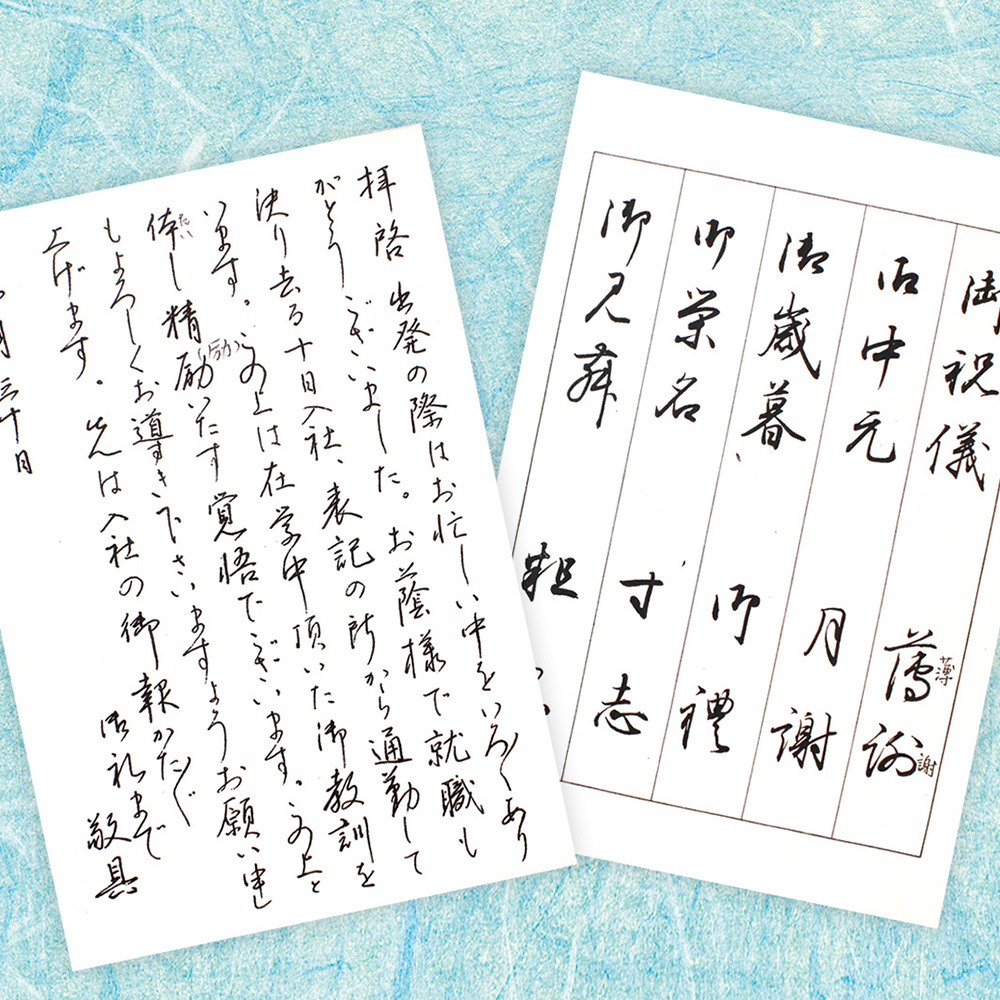 拝啓 出発の際はお忙しい中をいろ〱あり
がとうございました。お蔭様で就職も
決り去る十日入社、表記の所から通勤して
います。この上は在学中頂いた御教訓を
体し精励いたす覚悟でございます。この上と
たい
励
もよろしくお導き下さいますようお願い申し
上げます。先は入社の御報かた〲
御礼まで
敬具
月三十日
御祝儀 薄謝
薄
謝
御中元 月謝
御歳暮 御禮
御栄名 寸志
御見舞 粗